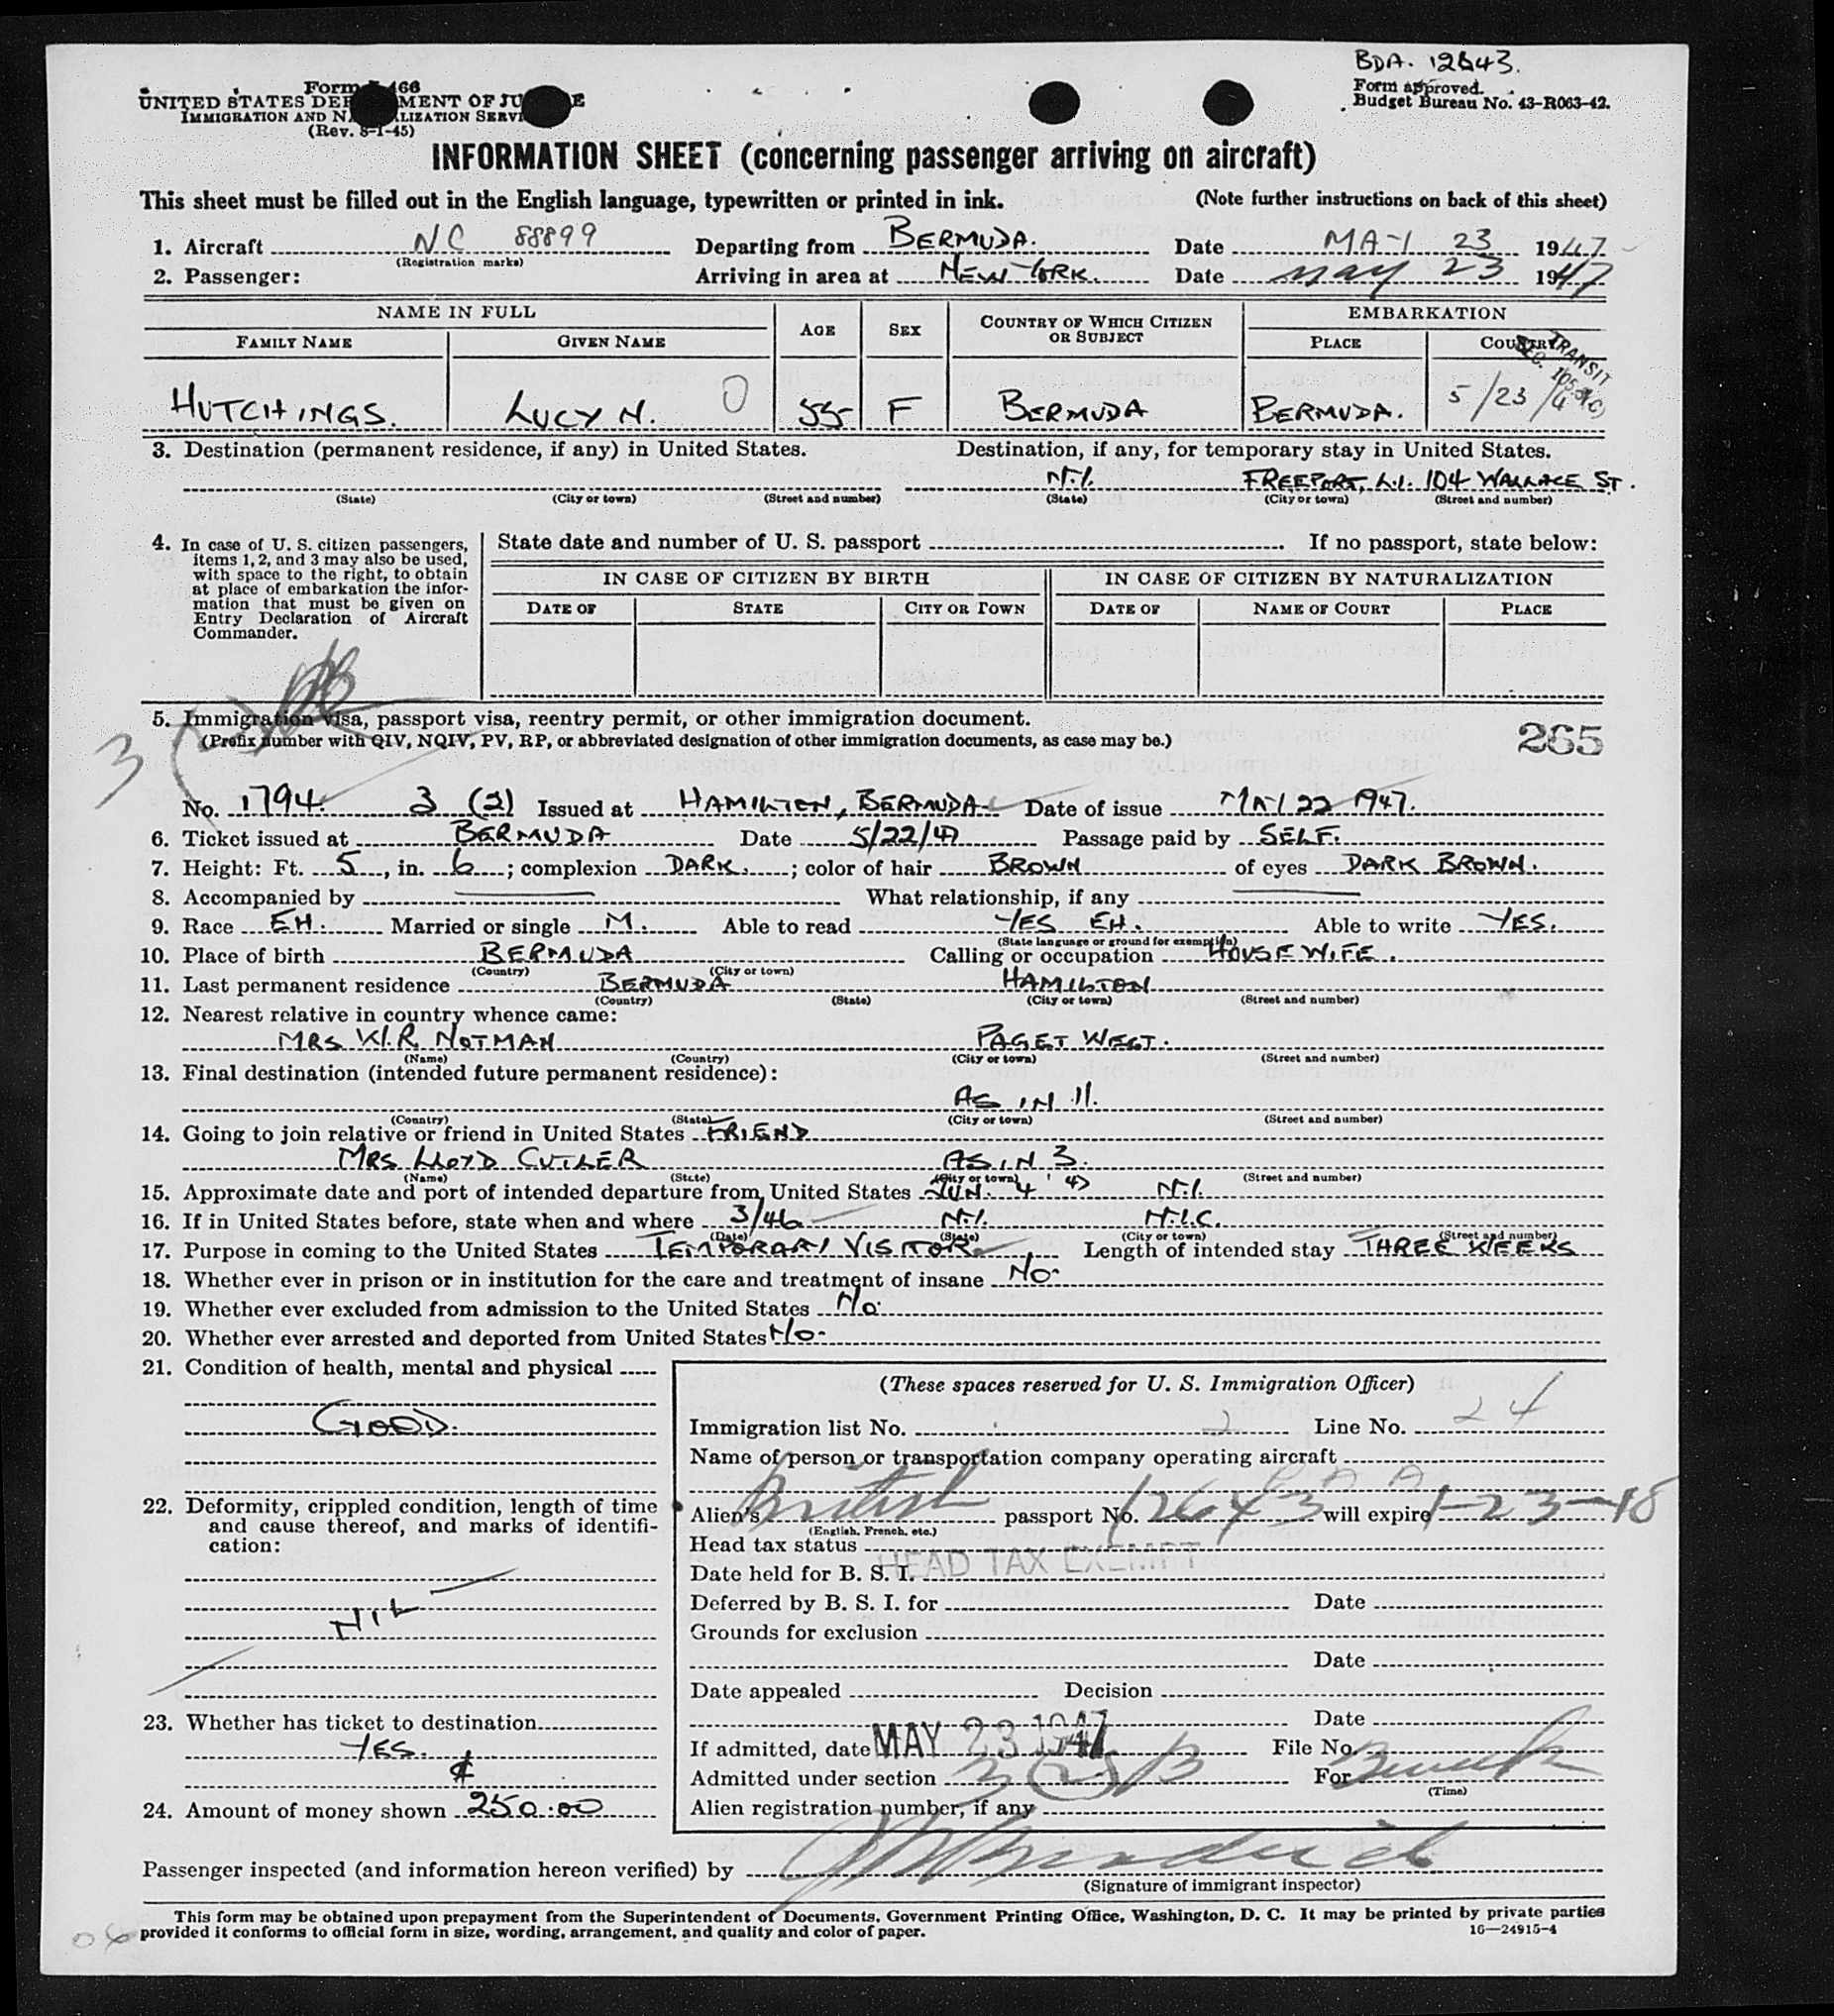 BDA. 12643.
Form I-466
UNITED STATES DEPARTMENT OF JUSTICE
IMMIGRATION AND NATURALIZATION SERVICE
(Rev. 8-1-45)
Form approved.
Budget Bureau No. 43-R063-42.
INFORMATION SHEET (concerning passenger arriving on aircraft)
This sheet must be filled out in the English language, typewritten or printed in ink. (Note further instructions on back of this sheet)
1. Aircraft NC 88899 Departing from BERMUDA. Date MAY 23 1947
(Registration marks)
2. Passenger: Arriving in area at NEW YORK. Date May 23 1947
NAME IN FULL AGE SEX COUNTRY OF WHICH CITIZEN OR SUBJECT EMBARKATION
FAMILY NAME GIVEN NAME PLACE COUNTRY
TRANSIT
HUTCHINGS. LUCY N. 0 55 F BERMUDA BERMUDA. 5/23/4
3. Destination (permanent residence, if any) in United States. Destination, if any, for temporary stay in United States.
N.Y. FREEPORT, L.I. 104 WALLACE ST.
(State) (City or town) (Street and number) (State) (City or town) (Street and number)
4. In case of U. S. citizen passengers, items 1, 2, and 3 may also be used, with space to the right, to obtain at place of embarkation the information that must be given on Entry Declaration of Aircraft Commander.
State date and number of U. S. passport . If no passport, state below:
IN CASE OF CITIZEN BY BIRTH IN CASE OF CITIZEN BY NATURALIZATION
DATE OF STATE CITY OR TOWN DATE OF NAME OF COURT PLACE
5. Immigration visa, passport visa, reentry permit, or other immigration document.
(Prefix number with QIV, NQIV, PV, RP, or abbreviated designation of other immigration documents, as case may be.)
265
3 (2)
No. 1794. 3 (2) Issued at HAMILTON, BERMUDA Date of issue MAY 22 1947.
6. Ticket issued at BERMUDA Date 5/22/47 Passage paid by SELF.
7. Height: Ft. 5, in. 6; complexion DARK.; color of hair BROWN of eyes DARK BROWN.
8. Accompanied by What relationship, if any
9. Race EH. Married or single M. Able to read YES EH. Able to write YES.
(State language or ground for exemption)
10. Place of birth BERMUDA Calling or occupation HOUSEWIFE.
(Country) (City or town)
11. Last permanent residence BERMUDA HAMILTON
(Country) (State) (City or town) (Street and number)
12. Nearest relative in country whence came:
MRS W.R. NOTMAN PAGET WEST.
(Name) (Country) (City or town) (Street and number)
13. Final destination (intended future permanent residence):
AS IN 11.
(Country) (State) (City or town) (Street and number)
14. Going to join relative or friend in United States FRIEND
MRS LLOYD CUTLER AS IN 3.
(Name) (State) (City or town) (Street and number)
15. Approximate date and port of intended departure from United States JUN. 4 '47 N.Y.
16. If in United States before, state when and where 3/46 N.Y. N.Y.C.
(Date) (State) (City or town) (Street and number)
17. Purpose in coming to the United States TEMPORARY VISITOR. Length of intended stay THREE WEEKS
18. Whether ever in prison or in institution for the care and treatment of insane NO.
19. Whether ever excluded from admission to the United States NO.
20. Whether ever arrested and deported from United States NO.
21. Condition of health, mental and physical
GOOD.
22. Deformity, crippled condition, length of time and cause thereof, and marks of identification:
NIL
23. Whether has ticket to destination
YES.
24. Amount of money shown $250.00
(These spaces reserved for U. S. Immigration Officer)
Immigration list No. 2 Line No. 24
Name of person or transportation company operating aircraft
P A A
Alien's British passport No. 12643 will expire 1-23-48
(English, French, etc.)
Head tax status
HEAD TAX EXEMPT
Date held for B. S. I.
Deferred by B. S. I. for Date
Grounds for exclusion
Date
Date appealed Decision
Date
If admitted, date MAY 23 1947 File No.
Admitted under section 3(2) B For
(Time)
Alien registration number, if any
Passenger inspected (and information hereon verified) by
(Signature of immigrant inspector)
This form may be obtained upon prepayment from the Superintendent of Documents, Government Printing Office, Washington, D. C. It may be printed by private parties
provided it conforms to official form in size, wording, arrangement, and quality and color of paper. 16—24915-4